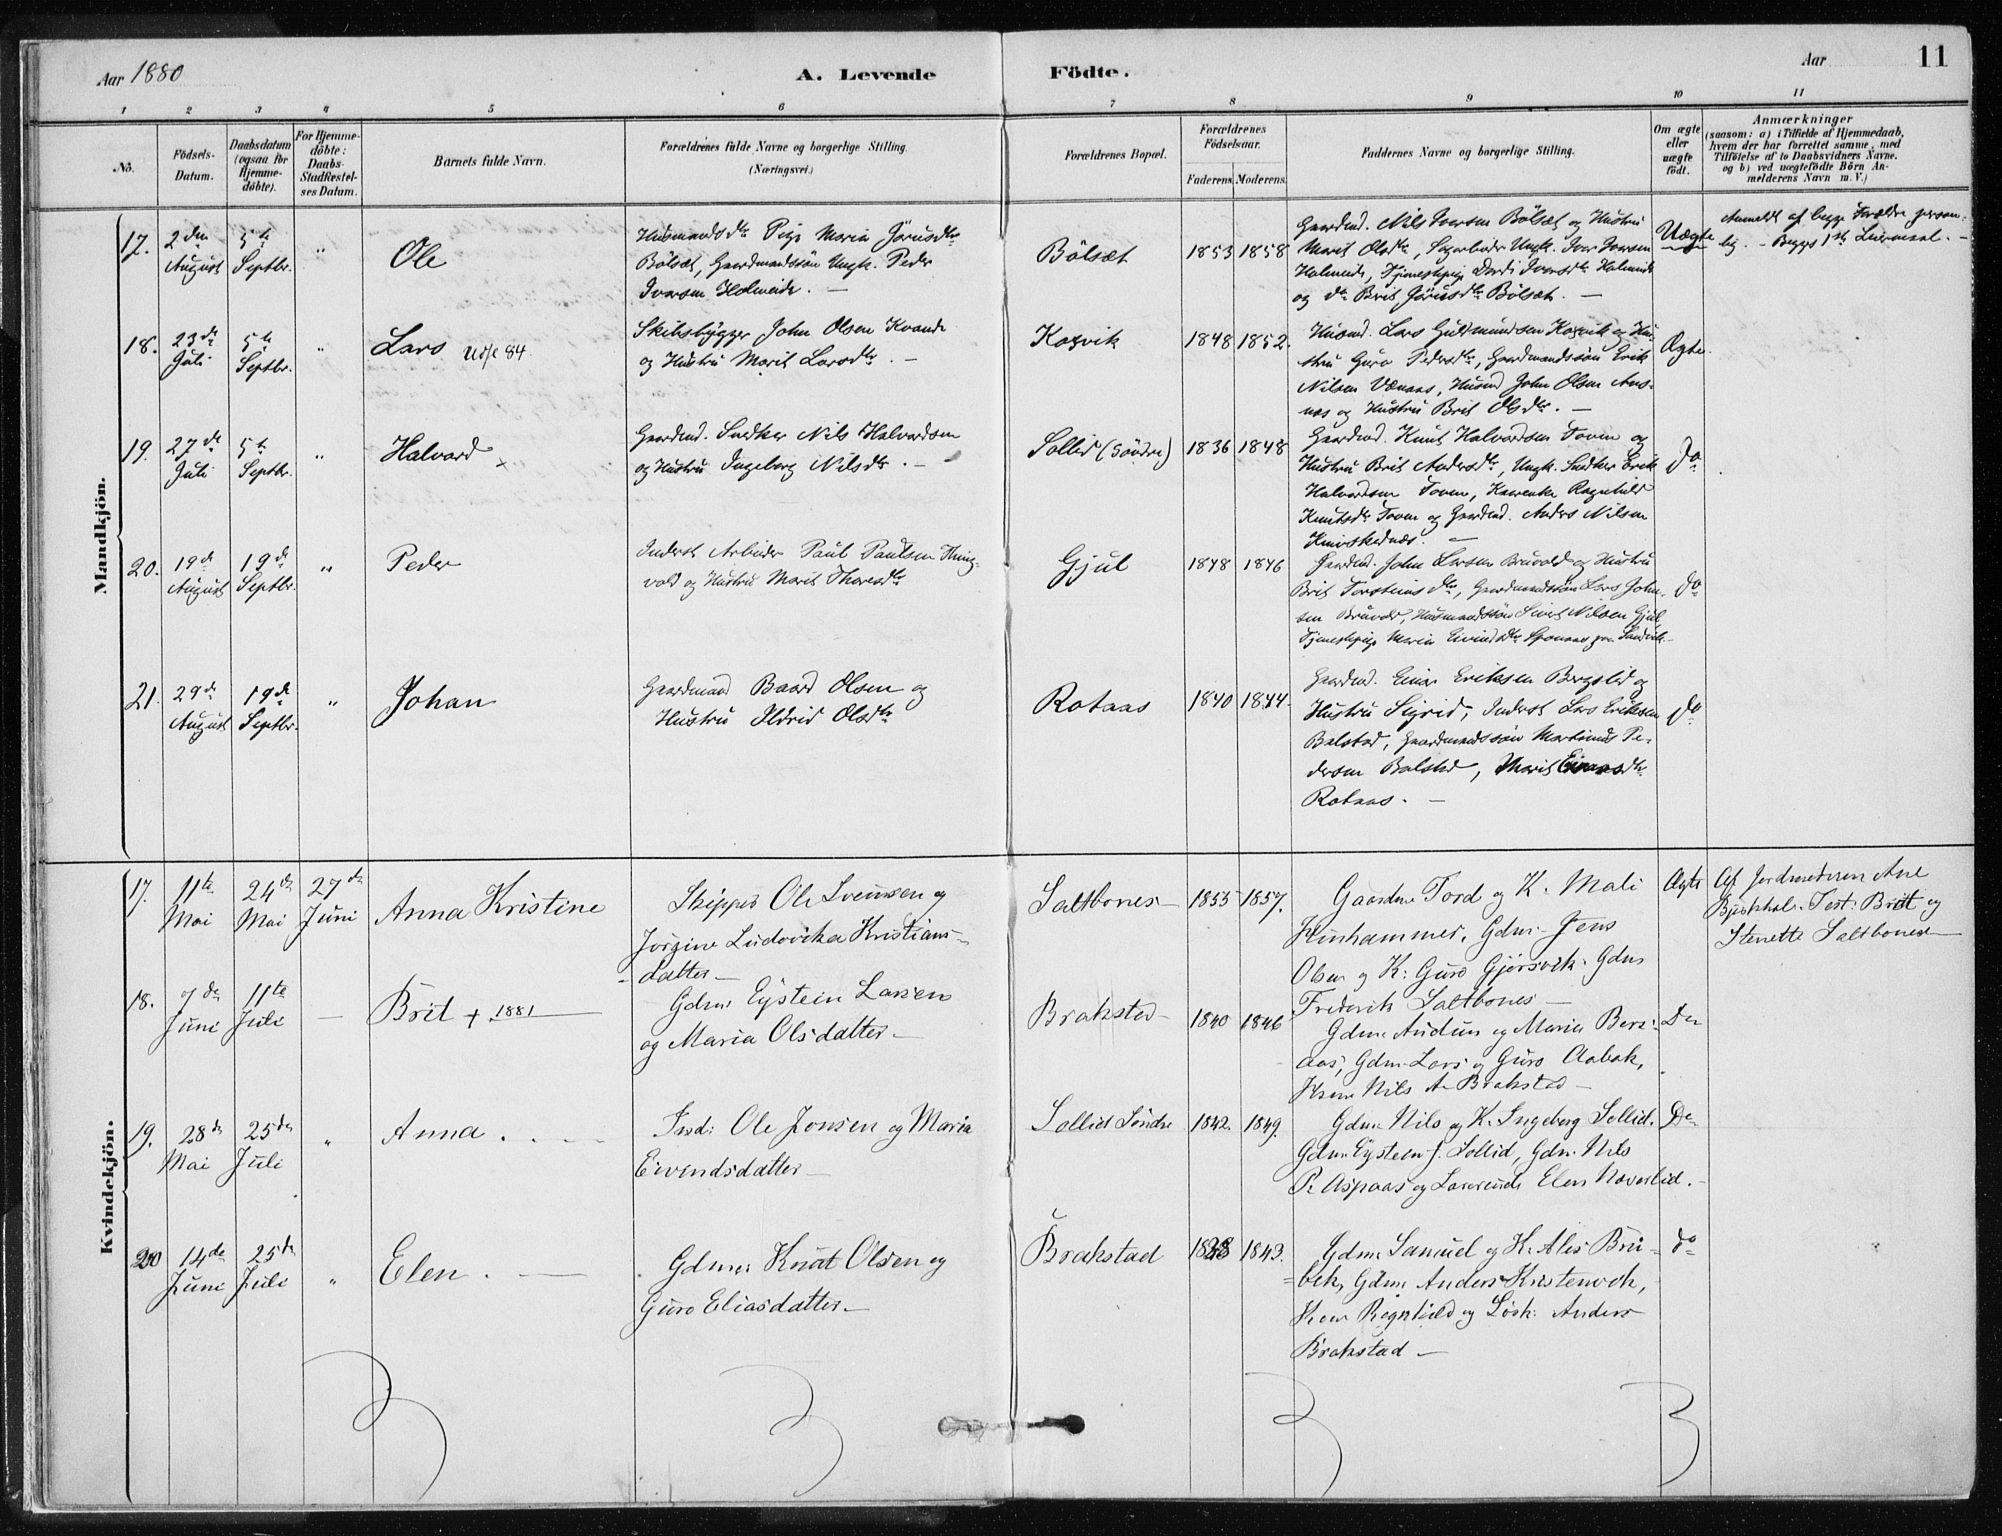 Aar 1880
A. Levende
Födte.
Aar
11
1 2 3 4 5 6 7 8 9 10 11
No.
Födsels-Datum.
Daabsdatum (ogsaa for Hjemme-döbte).
For Hjemme-döbte: Daabs-Stadfæstel-ses Datum.
Barnets fulde Navn.
Forældrenes fulde Navne og borgerlige Stilling.
(Næringsvei.)
Forældrenes Bopæl.
Forældrenes Födselsaar.
Faderens. Moderens.
Faddernes Navne og borgerlige Stilling.
Om ægte eller uægte födt.
Anmærkninger
(saasom: a) i Tilfælde af Hjemmedaab,
hvem der har forrettet samme, med
Tilföielse af to Daabsvidners Navne.
og b) ved uægtefödte Börn An-
melderens Navn m. V.)
Mandkjön.
17. 2den August 5te Septbr. " Ole
Husmandsdtr Pige Maria Jörusdtr
Bölsæt, Gaardmandssön Ungk. Peder
Iversen Holmeide. —
Bölsæt 1853 1858
Gaardmd. Nils Iversen Bölsæt og Hustru
Marit Olsdtr, Ungk. Iver Iversen
Holmeide, Tjenestepige Iversdtr Holmeide
og dtr Brit Jörusdtr Bölsæt. —
Uægte
Anmeldt af begge Forældre person-
lig. — Begges 1ste Leiermaal. —
18. 23de Juli 5te Septbr. " Lars 84
Skibsbygger John Olsen Kvande
og Hustru Marit Larsdtr. —
Korsvik 1848 1852.
Husmd. Lars Gudmundsen Korsvik og Hu-
stru Guro Pedersdtr, Gaardmandssön Erik
Nilsen Vænaas, Husmd John Olsen Aas-
næs og Hustru Brit Olsdtr. —
Ægte.
19. 27de Juli 5te Septbr. " Halvard ×
Gaardmd. Snedker Nils Halvardsen
og Hustru Ingeborg Nilsdtr. —
Sollid (Söndre) 1836 1848
Gaardmd. Knut Halvardsen Toven og
Hustru Brit Andersdtr, Ungk. Snedker Erik
Halvardsen Toven, Ragnhild
Knutsdtr Toven og Gaardmd. Anders Nilsen
do
20. 19de August 19de Septbr. " Peder
Inderst Arbeider Paul Paulsen Thing-
vold og Hustru Marit Thoresdtr
Gjul 1848 1846
Gaardmd. John Larsen Bruvold og Hustru
Brit Torsteinsdtr, Gaardmandssön Lars John-
sen Bruvold, Husmandssön Sivert Nilsen Gjul,
Tjenestepige Maria Eivindsdtr
do
21. 29de August 19de Septbr. " Johan
Gaardmand Baard Olsen og
Hustru Ildrid Olsdtr
Rotaas 1840 1844.
Gaardmd. Einar Eriksen Bergslid og
Hustru Sigrid, Inderst Lars Eriksen
Balstad, Gaardmandssön Martinus Pe-
dersen Balstad, Marit Einarsdtr
Rotaas. —
do
Kvindekjön.
17. 11te Mai 24de Mai 27de Juni Anna Kristine
Skipper Ole Svensen og
Jörgine Ludovika Kristians-
datter —
Saltbones 1855 1857.
Gaardm Tord og K. Mali
Hinhammer, Gdm. Jens
Olsen og K: Guro Gjersvik. Gdm
Frederik Saltbones —
Ægte
Af Jordmoderen Ane
Test: Brit og
Stenette Saltbones —
18. 7de Juni 11te Juli — Brit + 1881
Gdm: Eystein Larsen
og Maria Olsdatter —
Brakstad 1840 1846
Gdm: Audun og Maria Berg-
aas, Gdm. Lars og Guro Aabak,
Nils A. Brakstad —
Do
19. 28de Mai 25de Juli " Anna.
Ind: Ole Jonsen og Maria
Eivendsdatter —
Sollid Söndre 1842. 1849.
Gdm: Nils og K. Ingeborg Sollid.
Gdm: Eystein J. Sollid, Gdm. Nils
P. Aspaas og Elen Naverlid. —
Do
20 14de Juni 25de Juli " Elen. —
Gdm: Knut Olsen og
Guro Eliasdatter —
Brakstad 1838 1843.
Gdm: Samuel og K. Ales Bru-
bek, Gdm: Anders
Ragnhild og Anders
Brakstad —
do